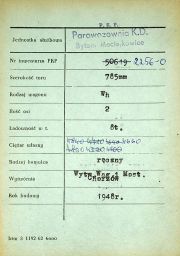 P. K. P.
Jednostka służbowa
Parowozownia K.D.
Bytom Maciejkowice
Nr inwentarza PKP 50619 2256-0
Szerokość toru 785mm
Rodzaj wagonu Wh
Ilość osi 2
Ładowność w t. 8t.
Ciężar własny
Rodzaj hamulca ręczny
Wytwórnia Wytw.Wag.i Most.
Chorzów
Rok budowy 1948r.